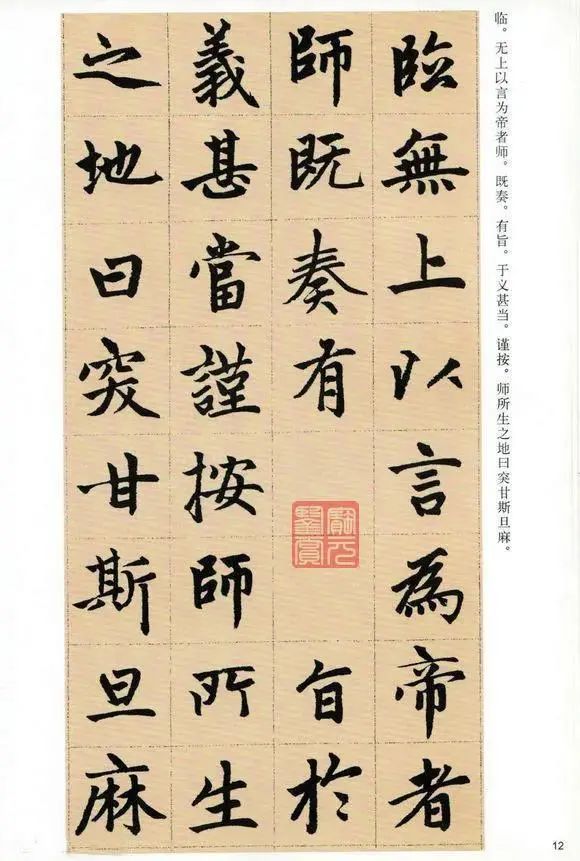 临。无上以言为帝者师。既奏。有旨。于义甚当。谨按。师所生之地曰突甘斯旦麻。
臨無上以言為帝者
師既奏有旨於
義甚當謹按師所生
之地曰突甘斯旦麻
12